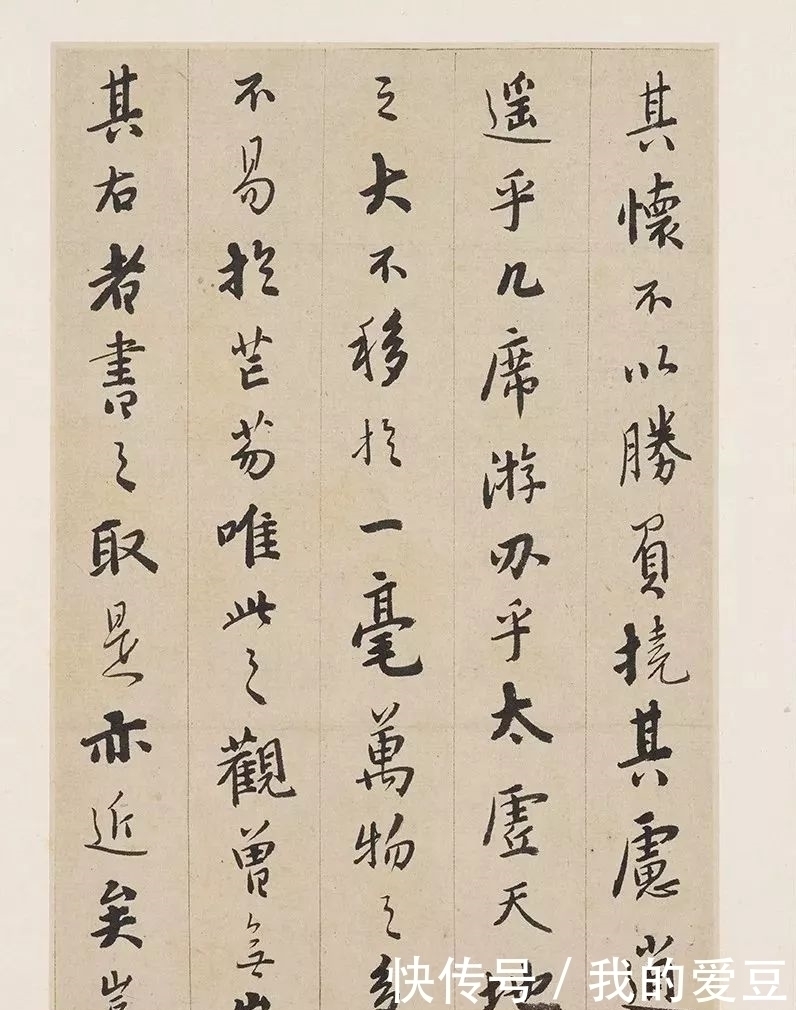 其懷不以勝負撓其慮逍
遥乎几席游刃乎太虛天地
之大不移於一毫萬物之多
不易於芒芴唯此之觀曾無
其右者書之取是亦近矣豈
快传号 / 我的爱豆